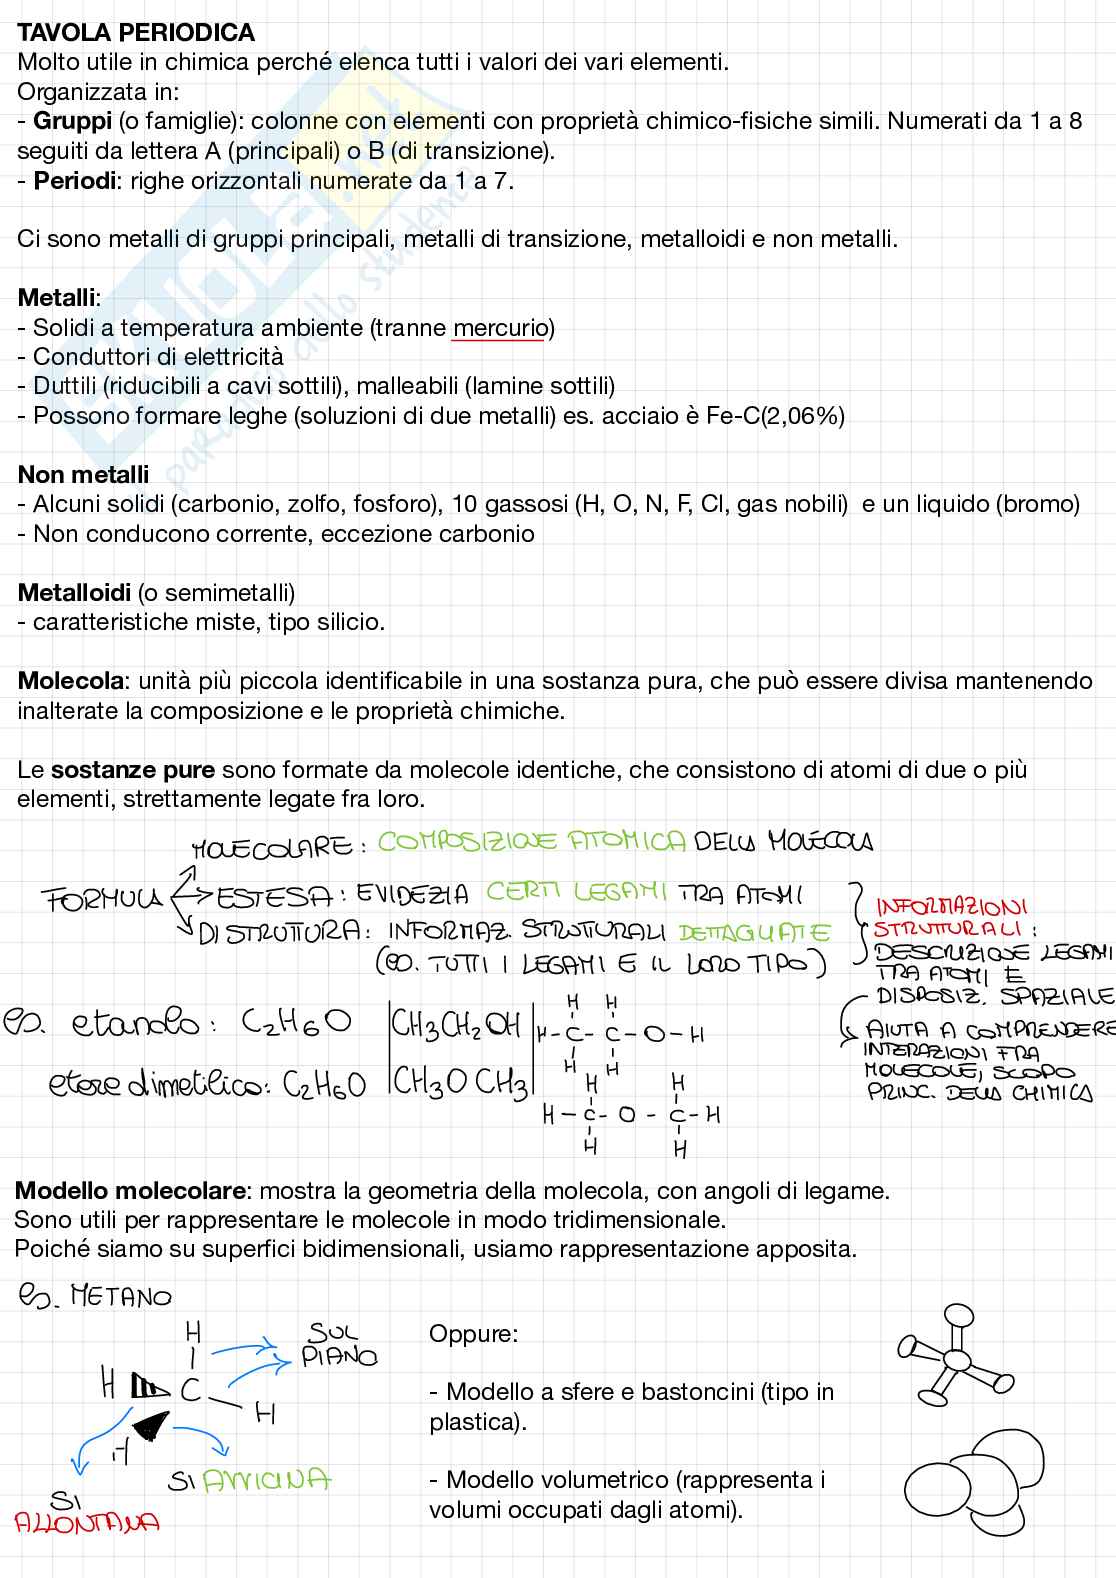 TAVOLA PERIODICA
Molto utile in chimica perché elenca tutti i valori dei vari elementi.
Organizzata in:
- Gruppi (o famiglie): colonne con elementi con proprietà chimico-fisiche simili. Numerati da 1 a 8
seguiti da lettera A (principali) o B (di transizione).
- Periodi: righe orizzontali numerate da 1 a 7.
Ci sono metalli di gruppi principali, metalli di transizione, metalloidi e non metalli.
Metalli:
- Solidi a temperatura ambiente (tranne mercurio)
- Conduttori di elettricità
- Duttili (riducibili a cavi sottili), malleabili (lamine sottili)
- Possono formare leghe (soluzioni di due metalli) es. acciaio è Fe-C(2,06%)
Non metalli
- Alcuni solidi (carbonio, zolfo, fosforo), 10 gassosi (H, O, N, F, Cl, gas nobili)  e un liquido (bromo)
- Non conducono corrente, eccezione carbonio
Metalloidi (o semimetalli)
- caratteristiche miste, tipo silicio.
Molecola: unità più piccola identificabile in una sostanza pura, che può essere divisa mantenendo
inalterate la composizione e le proprietà chimiche.
Le sostanze pure sono formate da molecole identiche, che consistono di atomi di due o più
elementi, strettamente legate fra loro.
MOLECOLARE: COMPOSIZIONE ATOMICA DELLA MOLECOLA
FORMULA ESTESA: EVIDEZIA CERTI LEGAMI TRA ATOMI
DI STRUTTURA: INFORMAZ. STRUTTURALI DETTAGLIATE
(es. TUTTI I LEGAMI E IL LORO TIPO)
INFORMAZIONI
STRUTTURALI:
DESCRIZIONE LEGAMI
TRA ATOMI E
DISPOSIZ. SPAZIALE
AIUTA A COMPRENDERE
INTERAZIONI FRA
MOLECOLE, SCOPO
PRINC. DELLA CHIMICA
es. etanolo: C2H6O |CH3CH2OH|
H H
H-C-C-O-H
H H
etere dimetilico: C2H6O |CH3OCH3|
H H
H-C-O-C-H
H H
Modello molecolare: mostra la geometria della molecola, con angoli di legame.
Sono utili per rappresentare le molecole in modo tridimensionale.
Poiché siamo su superfici bidimensionali, usiamo rappresentazione apposita.
es. METANO
H
SUL
PIANO
H C
H
H
SI AVVICINA
SI
ALLONTANA
Oppure:
- Modello a sfere e bastoncini (tipo in
plastica).
- Modello volumetrico (rappresenta i
volumi occupati dagli atomi).
SKUOLA.net
paradiso dello studente